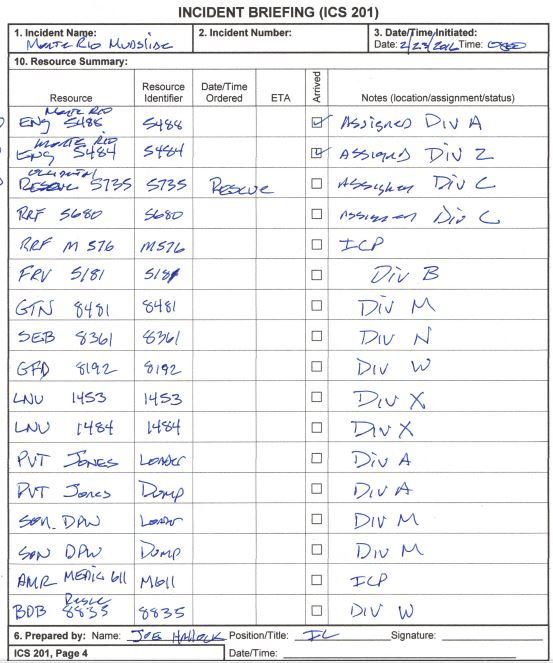 INCIDENT BRIEFING (ICS 201)
1. Incident Name: Monte Rio Mudslide 2. Incident Number: 3. Date/Time Initiated:
Date: 2/23/2016 Time: 0800
10. Resource Summary:
Resource Resource Identifier Date/Time Ordered ETA Arrived Notes (location/assignment/status)
Monte Rio
Eng 5485 5488 ☑ Assigned Div A
Monte Rio
Eng 5484 5484 ☑ Assigned Div Z
Occidental
Rescue 5735 5735 Rescue ☐ Assigned Div C
RRF 5680 5680 ☐ Assigned Div C
RRF M 576 M576 ☐ ICP
FRV 5181 5181 ☐ Div B
GTN 8481 8481 ☐ Div M
SEB 8361 8361 ☐ Div N
GRD 8192 8192 ☐ Div W
LNU 1453 1453 ☐ Div X
LNU 1484 1484 ☐ Div X
PVT Jones Loader ☐ Div A
PVT Jones Dump ☐ Div A
Son DPW Loader ☐ Div M
Son DPW Dump ☐ Div M
AMR Medic 611 M611 ☐ ICP
Rescue
BDB 8835 8835 ☐ Div W
6. Prepared by: Name: Joe Position/Title: IC Signature:
ICS 201, Page 4 Date/Time: